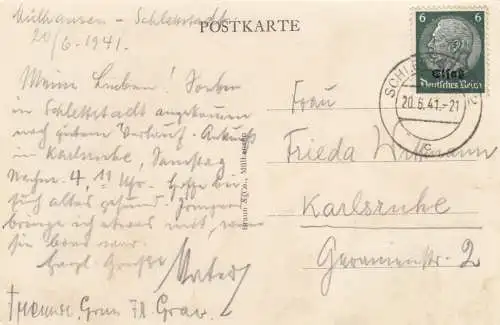 Mülhausen – Schlettstadt
20/6. 1941.
POSTKARTE
6 6
Elsaß
Deutsches Reich
SCHLETTSTADT
20.6.41.-21
c
Meine Lieben! Soeben
in Schlettstadt angekommen
nach gutem Verlauf. Ankunft
in Karlsruhe, Samstag
Nachm. 4,11 Uhr. Hoffe bei
Euch alles gesund!
bringe ich etwas mit, wenn
sie brav war.
Herzl. Grüße Vater
Frau
Frieda
Karlsruhe
2
Braun & Co., Mülhausen